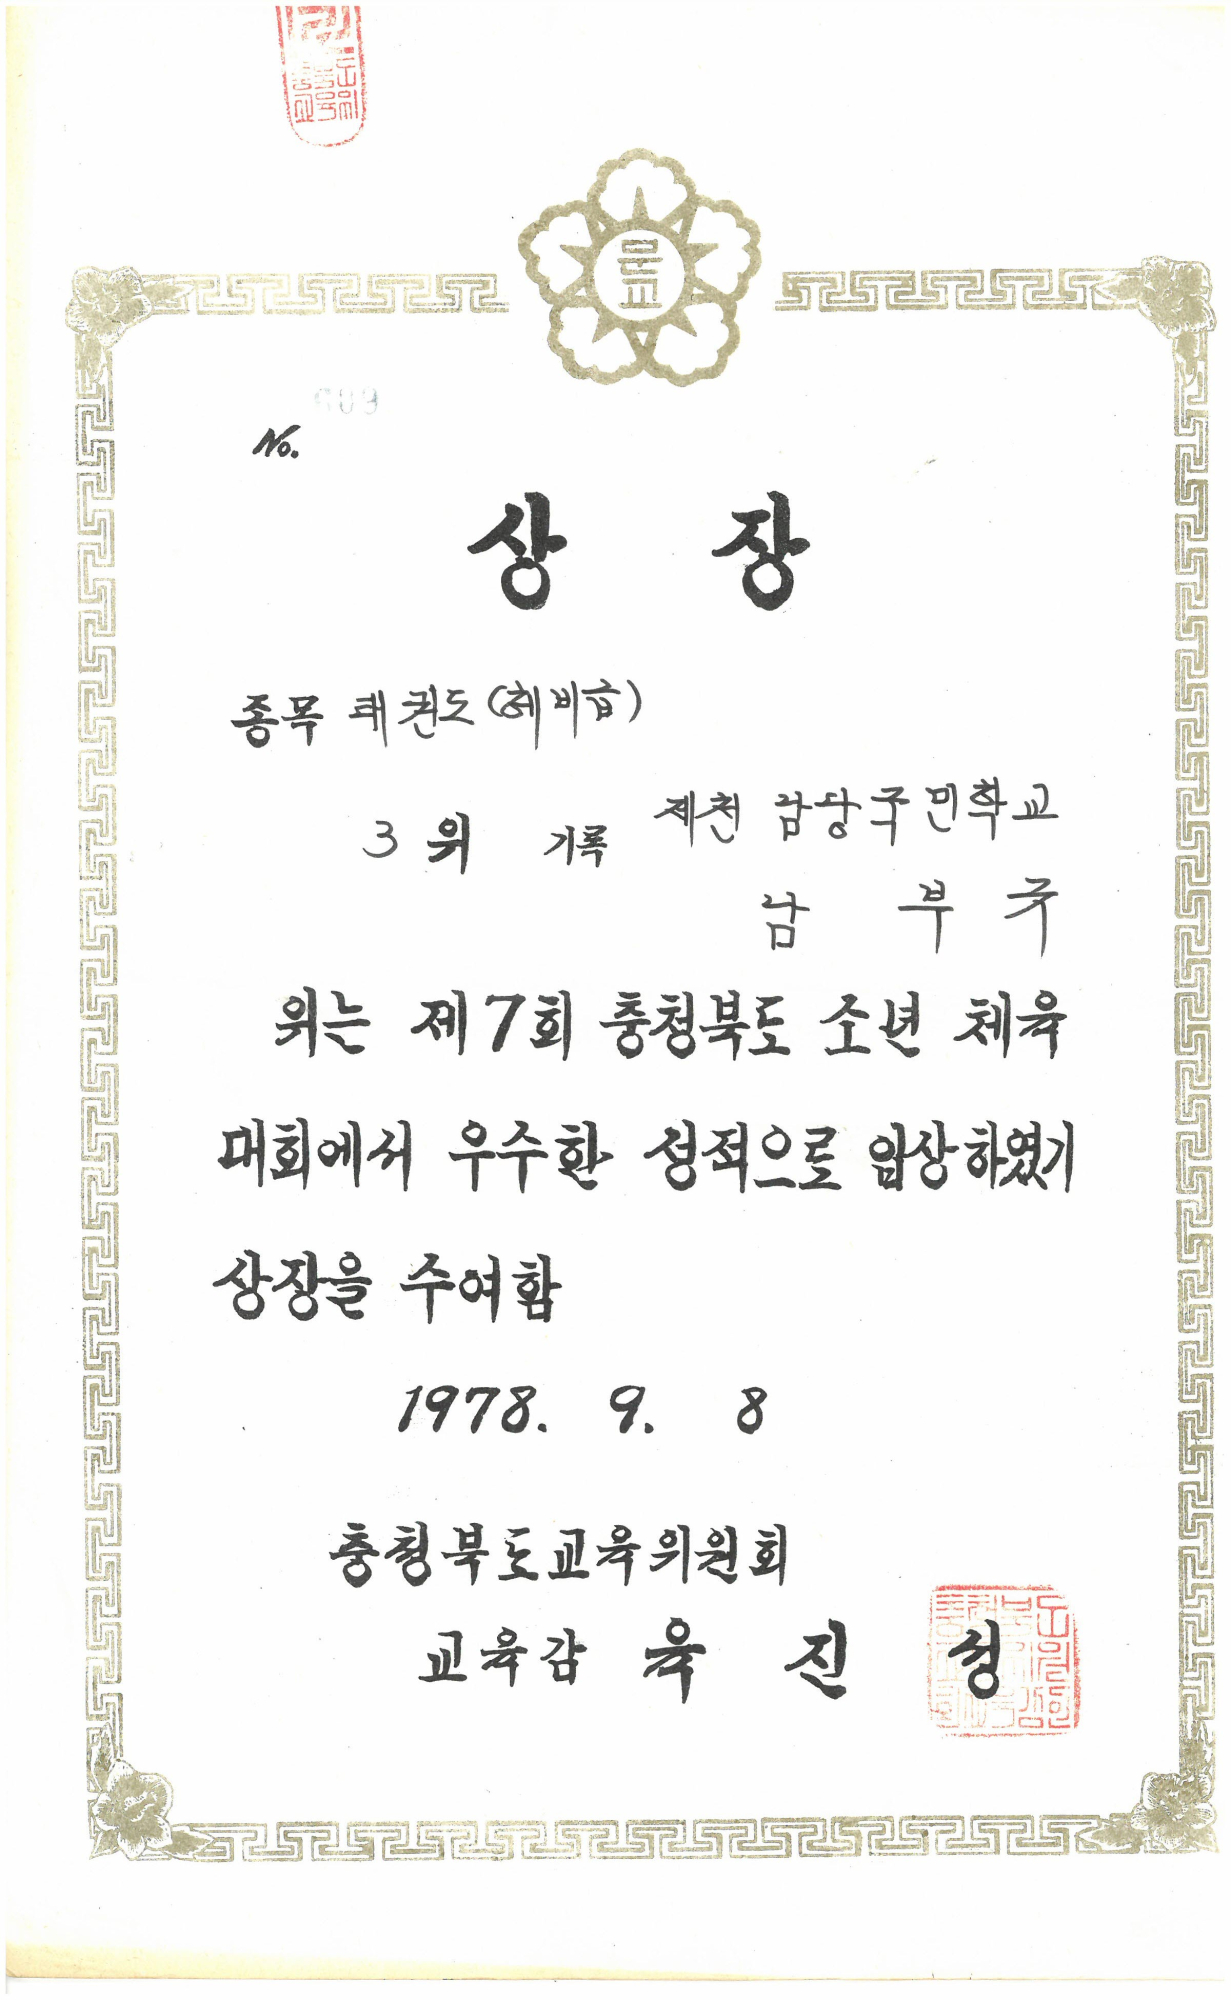 문교
No.
상 장
종목 태권도(헤비급)
3 위 기록 제천 남당국민학교
남 부 국
위는 제7회 충청북도 소년 체육
대회에서 우수한 성적으로 입상하였기
상장을 수여함
1978. 9. 8
충청북도교육위원회
교육감 육 진 성